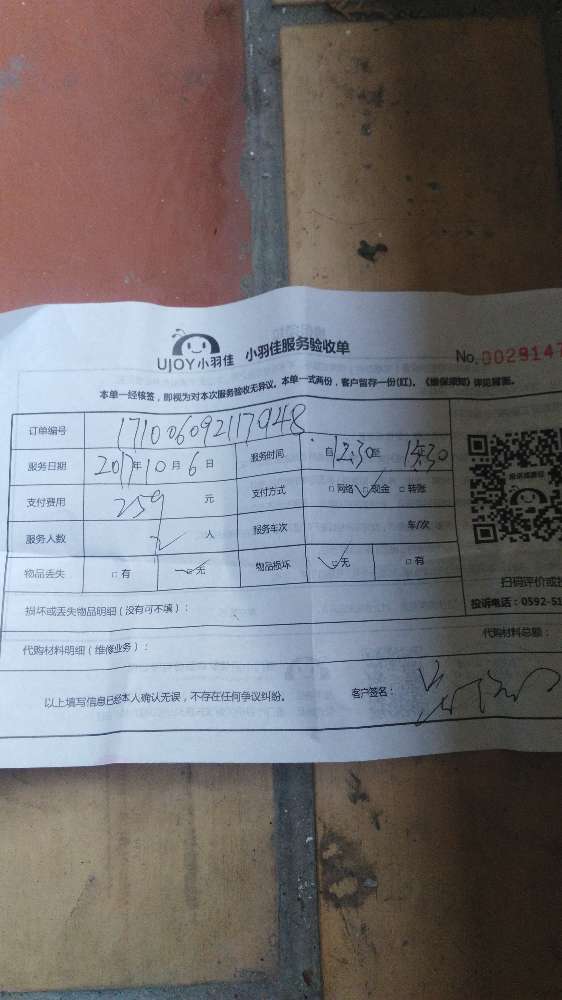 UJOY小羽佳 小羽佳服务验收单
No.0029147
本单一经核签，即视为对本次服务验收无异议。本单一式两份，客户留存一份(红)。《维保须知》详见背面。
订单编号 171006092117948
服务日期 2017年10月6日 服务时间 自12:30至14:30
支付费用 259元 支付方式 □网络 ☑现金 □转账
服务人数 2人 服务车次 车/次
物品丢失 □有 ☑无 物品损坏 ☑无 □有
扫码评价或投
损坏或丢失物品明细(没有可不填)： 投诉电话：0592-51
代购材料明细(维修业务)： 代购材料总额：
以上填写信息已经本人确认无误，不存在任何争议纠纷。 客户签名：